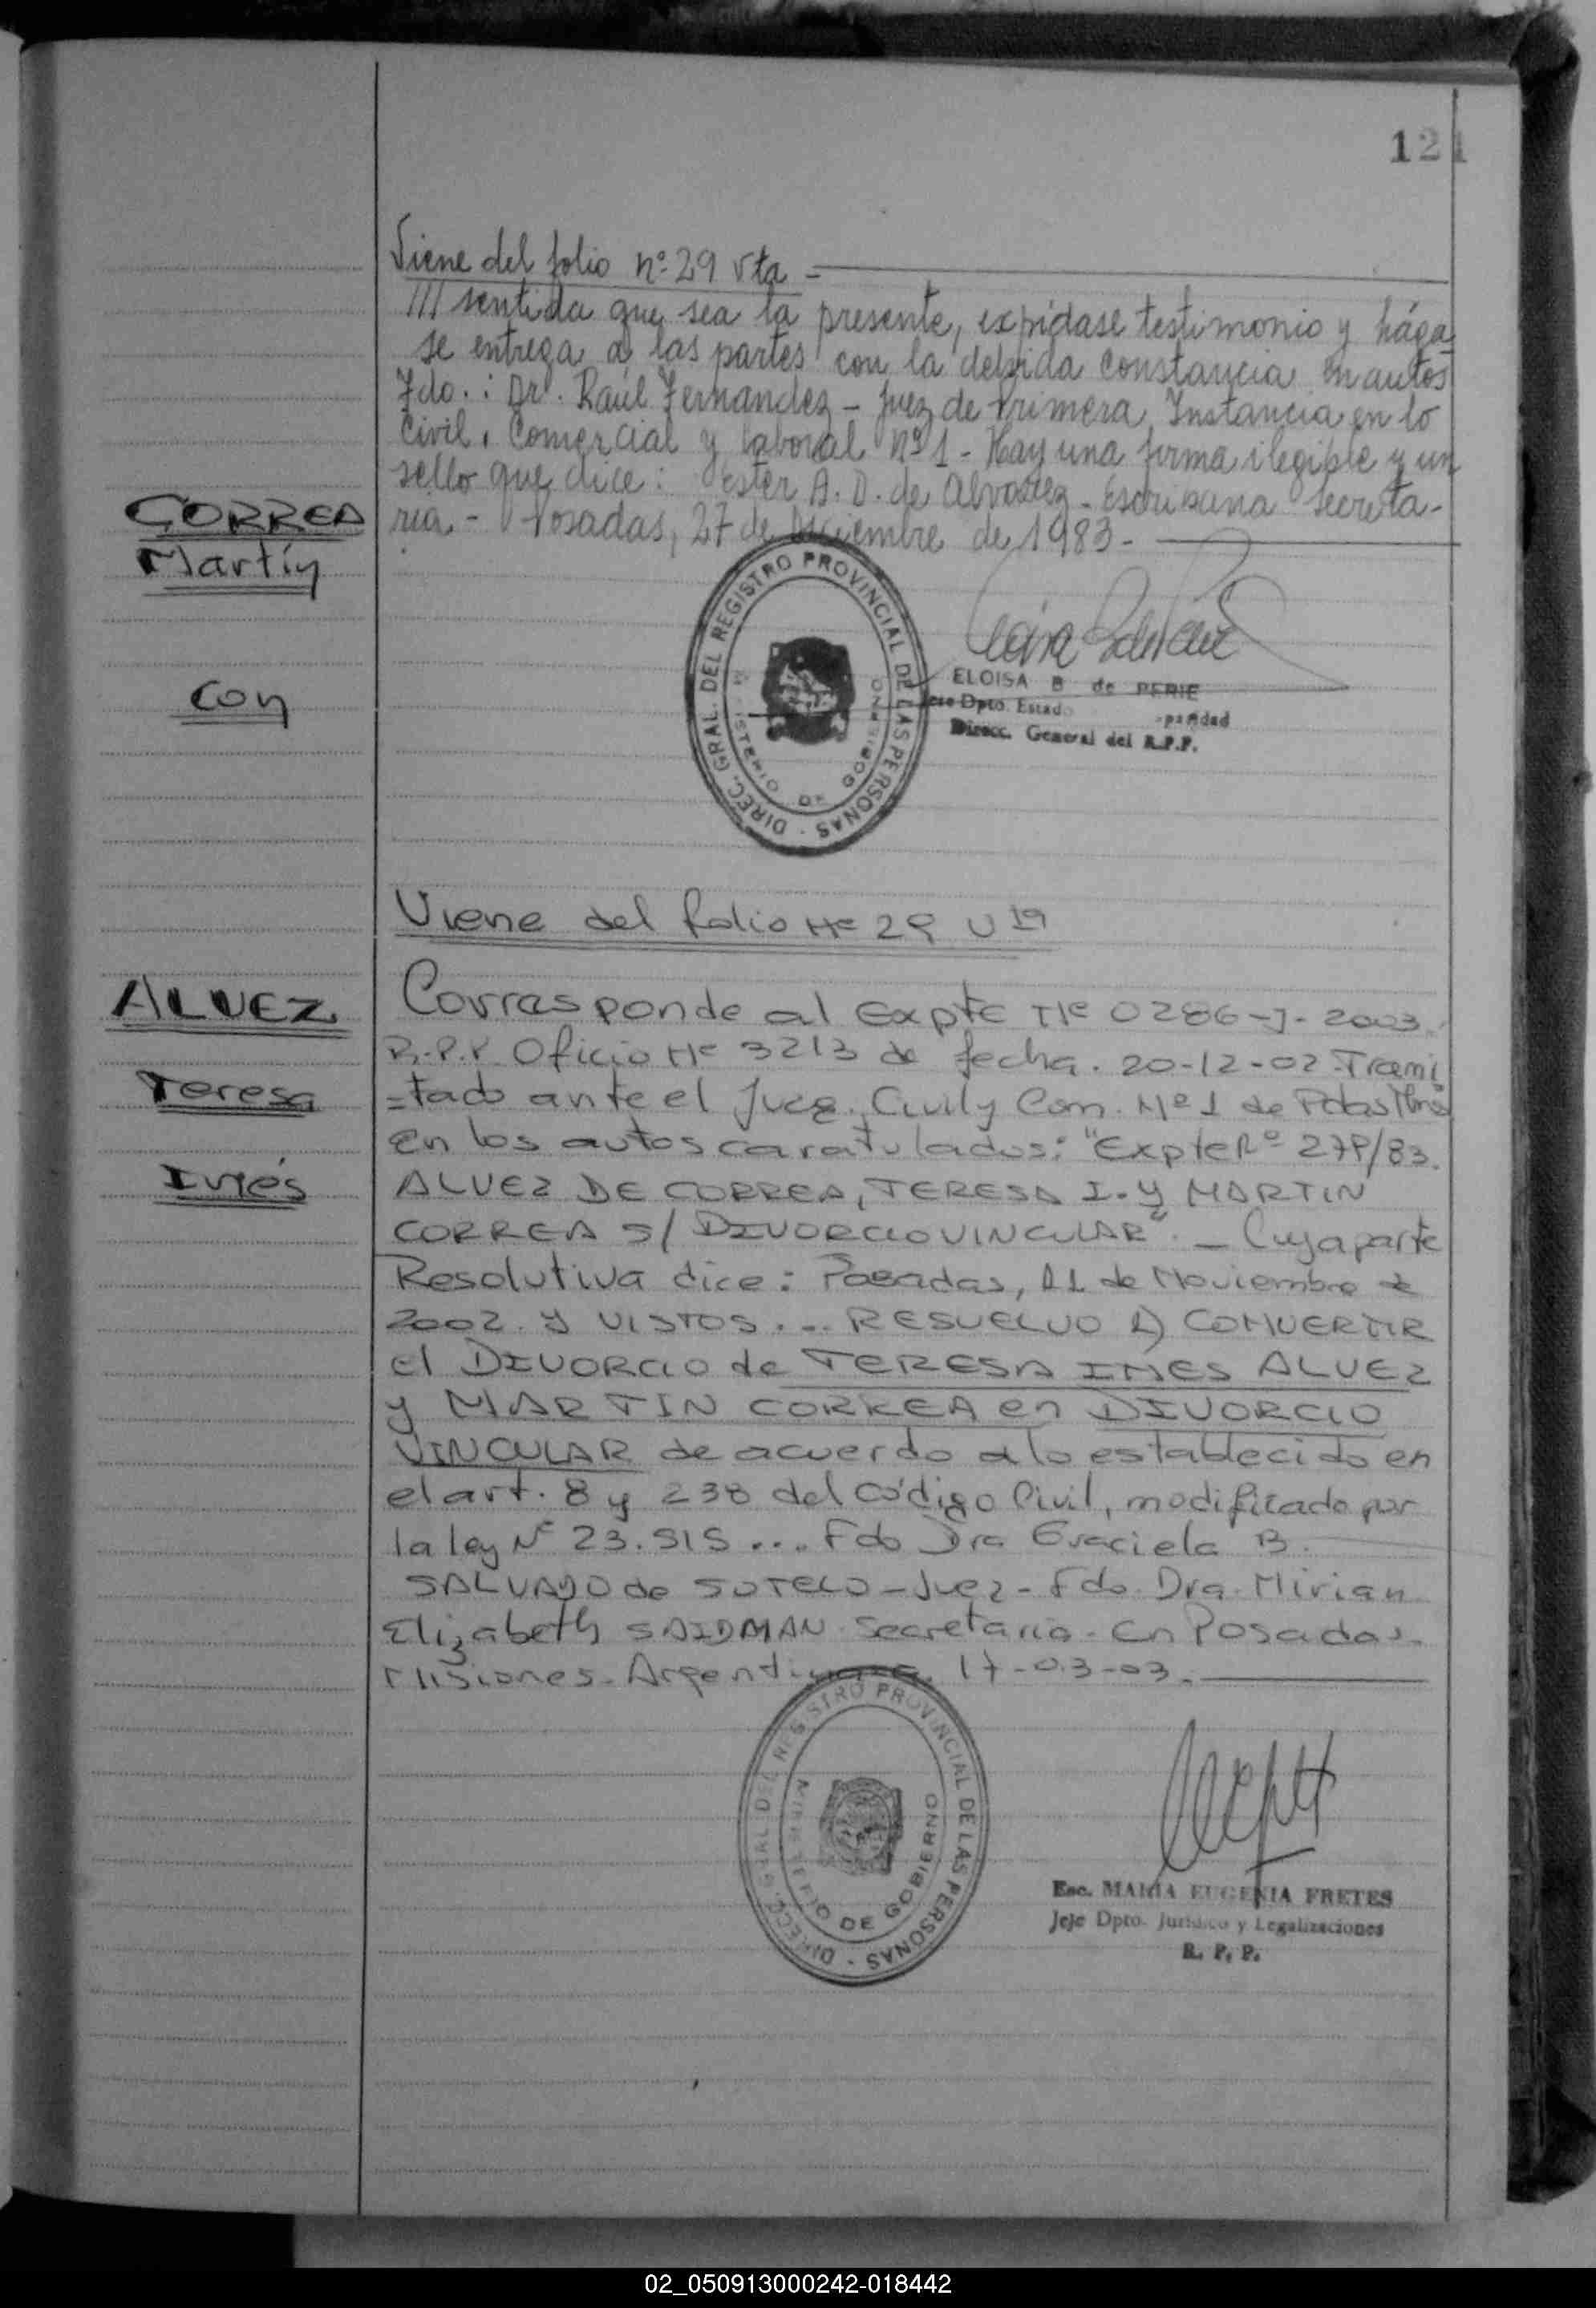 121
Viene del folio nº 29 vta -
/// sentida que sea la presente, expídase testimonio y hága
se entrega a las partes con la debida constancia en autos
Fdo.: Dr. Raúl Fernandez - Juez de Primera Instancia en lo
Civil, Comercial y laboral nº 1 - Hay una firma ilegible y un
sello que dice: Ester A. D. de Alvarez - Escribana Secreta-
ria - Posadas, 27 de Diciembre de 1983 -
CORREA
Martín
con
ALVEZ
Teresa
Inés
DIREC. GRAL. DEL REGISTRO PROVINCIAL DE LAS PERSONAS -
MINISTERIO DE GOBIERNO
ELOISA B de PERIE
Jefe Dpto. Estado
Direcc. General del R.P.P.
Viene del folio Nº 29 vta
Corresponde al Expte Nº 0286-J-2003.
R.P.P. Oficio Nº 3213 de fecha. 20-12-02 Trami
=tado ante el Juzg. Civil y Com. Nº 1 de Pdas Mnes
En los autos caratulados: "Expte Nº 279/83.
ALVEZ DE CORREA, TERESA I. y MARTIN
CORREA S/ DIVORCIO VINCULAR". - Cuya parte
Resolutiva dice: Posadas, 11 de Noviembre de
2002. Y VISTOS... RESUELVO 1) CONVERTIR
el DIVORCIO de TERESA INES ALVEZ
y MARTIN CORREA en DIVORCIO
VINCULAR de acuerdo a lo establecido en
el art. 8 y 238 del Código Civil, modificado por
la ley Nº 23.515 .... Fdo Dra Graciela B.
SALVADO de SOTELO - Juez - Fdo. Dra. Mirian
Elizabeth SAIDMAN Secretaria - En Posadas
Misiones - Argentina a 17-03-03.
DIRECC. GRAL. DEL REGISTRO PROVINCIAL DE LAS PERSONAS -
MINISTERIO DE GOBIERNO
Esc. MARIA EUGENIA FRETES
Jefe Dpto. Jurídico y Legalizaciones
R. P. P.
02_050913000242-018442